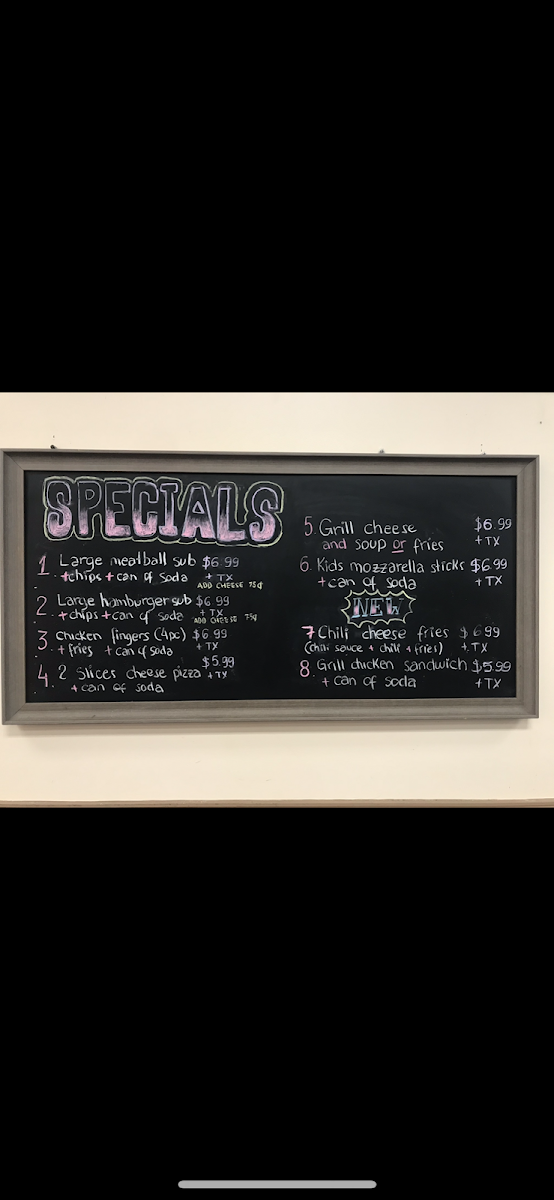 SPECIALS
1. Large meatball sub $6.99
+chips + can of soda + TX
ADD CHEESE 75¢
2. Large hamburger sub $6.99
+chips + can of soda + TX
ADD CHEESE 75¢
3. Chicken fingers (4pc) $6.99
+ fries + can of soda + TX
4. 2 Slices cheese pizza $5.99
+ can of soda + TX
5. Grill cheese $6.99
and soup or fries + TX
6. Kids mozzarella sticks $6.99
+ can of soda + TX
NEW
7 Chili cheese fries $6.99
(chili sauce + chili + fries) + TX
8. Grill chicken sandwich $5.99
+ can of soda + TX